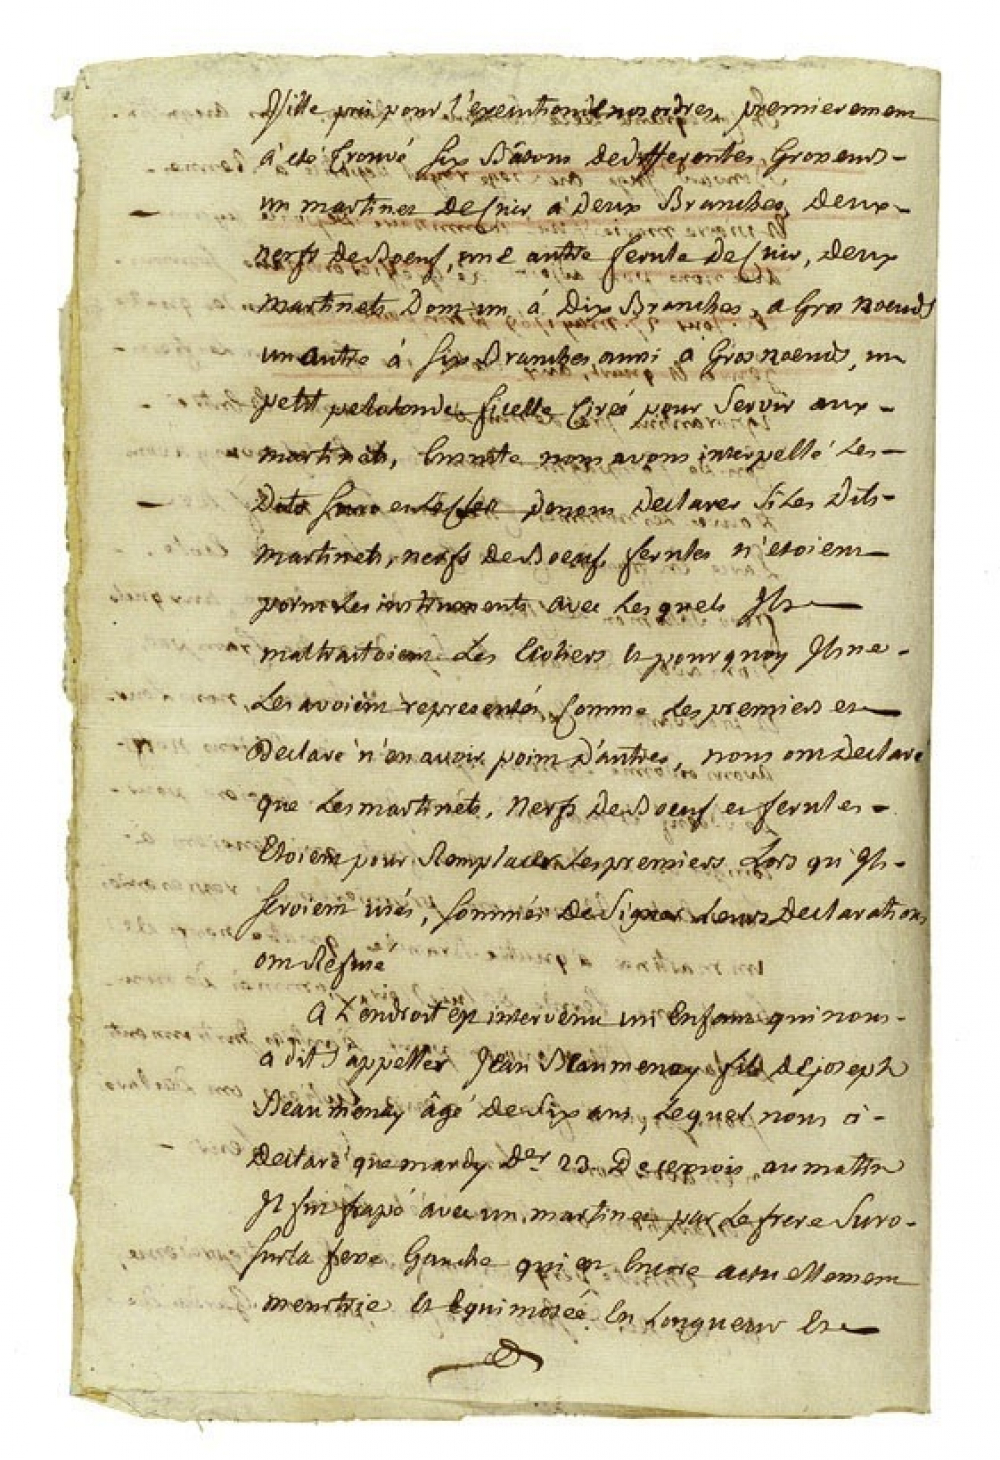 Ville pris pour l'execution de nos ordres, premierement
à eté trouvé six Bâtons de differentes Grosseurs
un martinet de Cuir à deux Branches, deux
nerfs de Boeuf, une autre ferule de Cuir, deux
martinets Dont un à Dix Branches, a Gros noeuds
un autre à six Branches aussi à Gros noeuds, un
petit peloton de ficelle Cirée pour Servir aux
martinets, Ensuite nous avons interpellé Les
Dits Suro et de nous Declarer Si Les Dits
martinets, nerfs de Boeuf ferules n'etoient
point Les instruments avec Lesquels Ils
maltraitoient Les Ecoliers et pourquoy Ils ne
Les avoient representés Comme Les premiers et
Declaré n'en avoir point D'autres, nous ont Declaré
que Les martinets, Nerfs de Boeuf et ferules
Etoient pour Remplacer Les premiers Lors qu'Ils
seroient usés, Sommés de Signer Leurs Declarations
ont Refusé
A L'endroit est intervenu un Enfant qui nous
a dit S'appeller Jean Beaumenay fils de joseph
Beaumenay âgé de Six ans, Lequel nous à
Declaré que mardy der 23 De ce mois au matin
Il fut frapé avec un martinet par Le frere Suro
sur la fese Gauche qui est Encore actuellement
meurtrie et Equimosée En Longueur Et